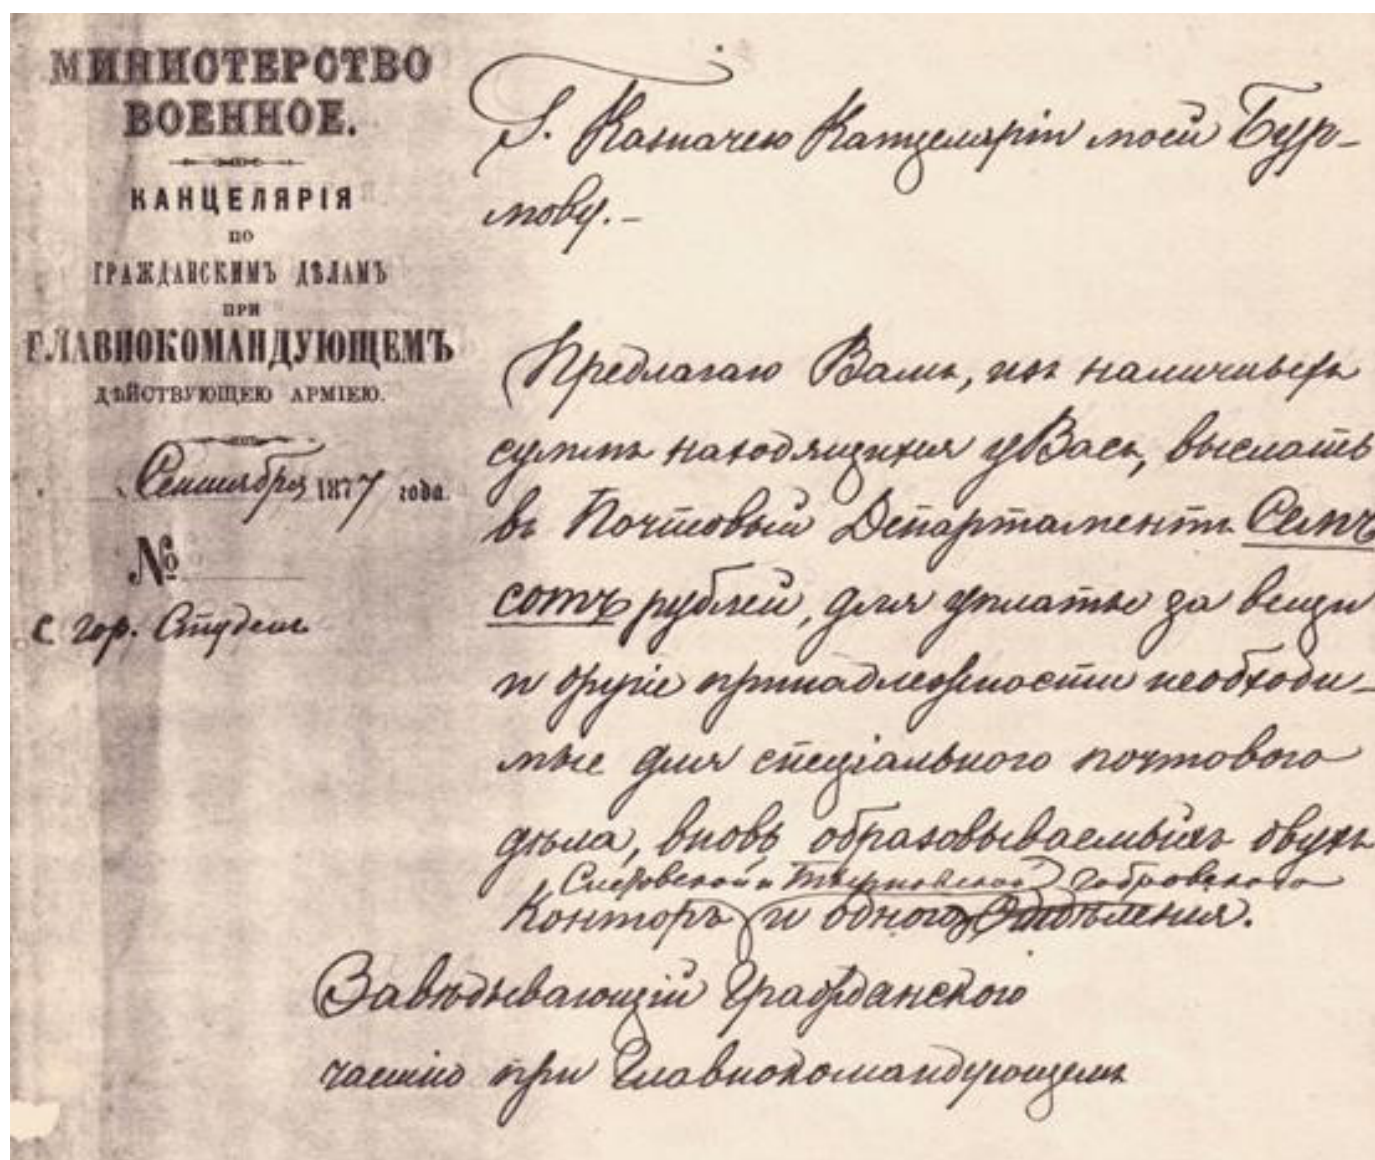 МИНИСТЕРСТВО
ВОЕННОЕ.
КАНЦЕЛЯРІЯ
ПО
ГРАЖДАНСКИМЪ ДѢЛАМЪ
ПРИ
ГЛАВНОКОМАНДУЮЩЕМЪ
ДѢЙСТВУЮЩЕЮ АРМІЕЮ.
Сентября 1877 года.
№
гор. Студень
Г. Казначею Канцеляріи моей Бур-
мову.-
Предлагаю Вамъ, изъ наличныхъ
суммъ находящихся у Васъ, выслать
въ Почтовый Департаментъ Семь
сотъ рублей, для уплаты за вещи
и другіе принадлежности необходи-
мые для спеціальнаго почтоваго
дѣла, вновь образовываемыхъ двухъ
Систовской и Тырновской Габровскаго
Конторъ и одного Отдѣленія.
Завѣдывающій Гражданскою
частію при Главнокомандующемъ